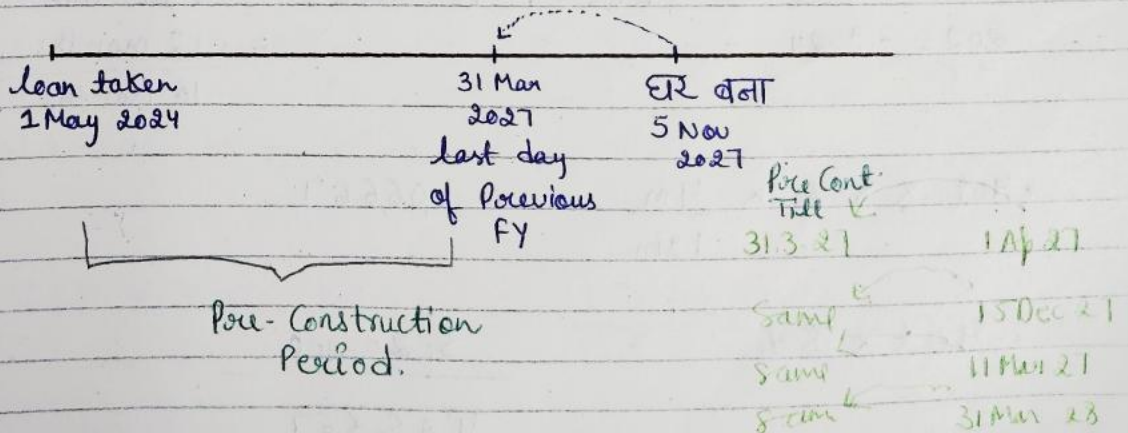 loan taken
1 May 2024
31 Mar
2027
last day
of Previous
FY
घर बना
5 Nov
2027
Pre-Construction
Period.
Pre Cont.
Till
31.3.27 1 Ap 27
Same 15 Dec 27
Same 11 Mar 21
Same 31 Mar 28